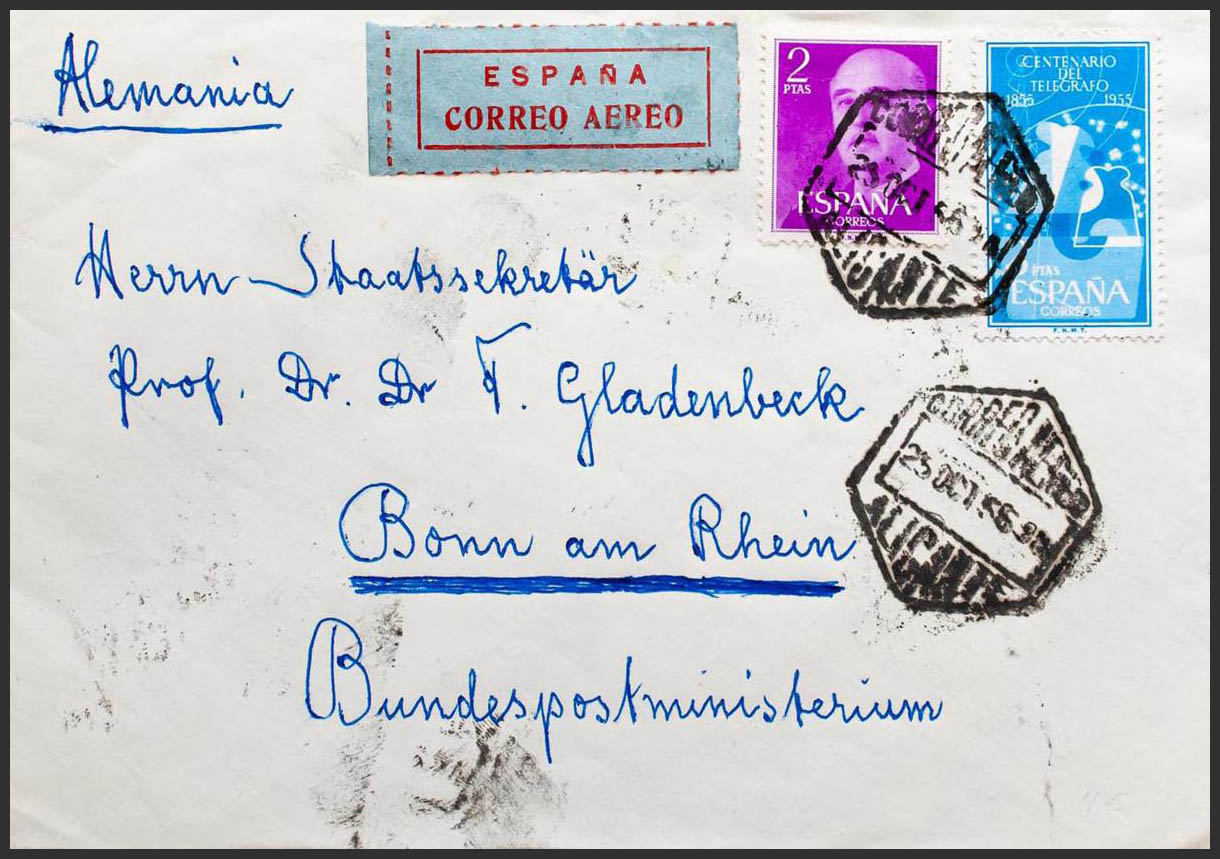 Alemania
ESPAÑA
CORREO AEREO
2
PTAS
ESPAÑA
CORREOS
CENTENARIO
DEL
TELEGRAFO
1855 1955
PTAS
ESPAÑA
CORREOS
F.N.M.T.
ALICANTE
Herrn Staatssekretär
Prof. Dr. Dr. F. Gladenbeck
CORREO AEREO
25 OCT 56
ALICANTE
Bonn am Rhein
Bundespostministerium